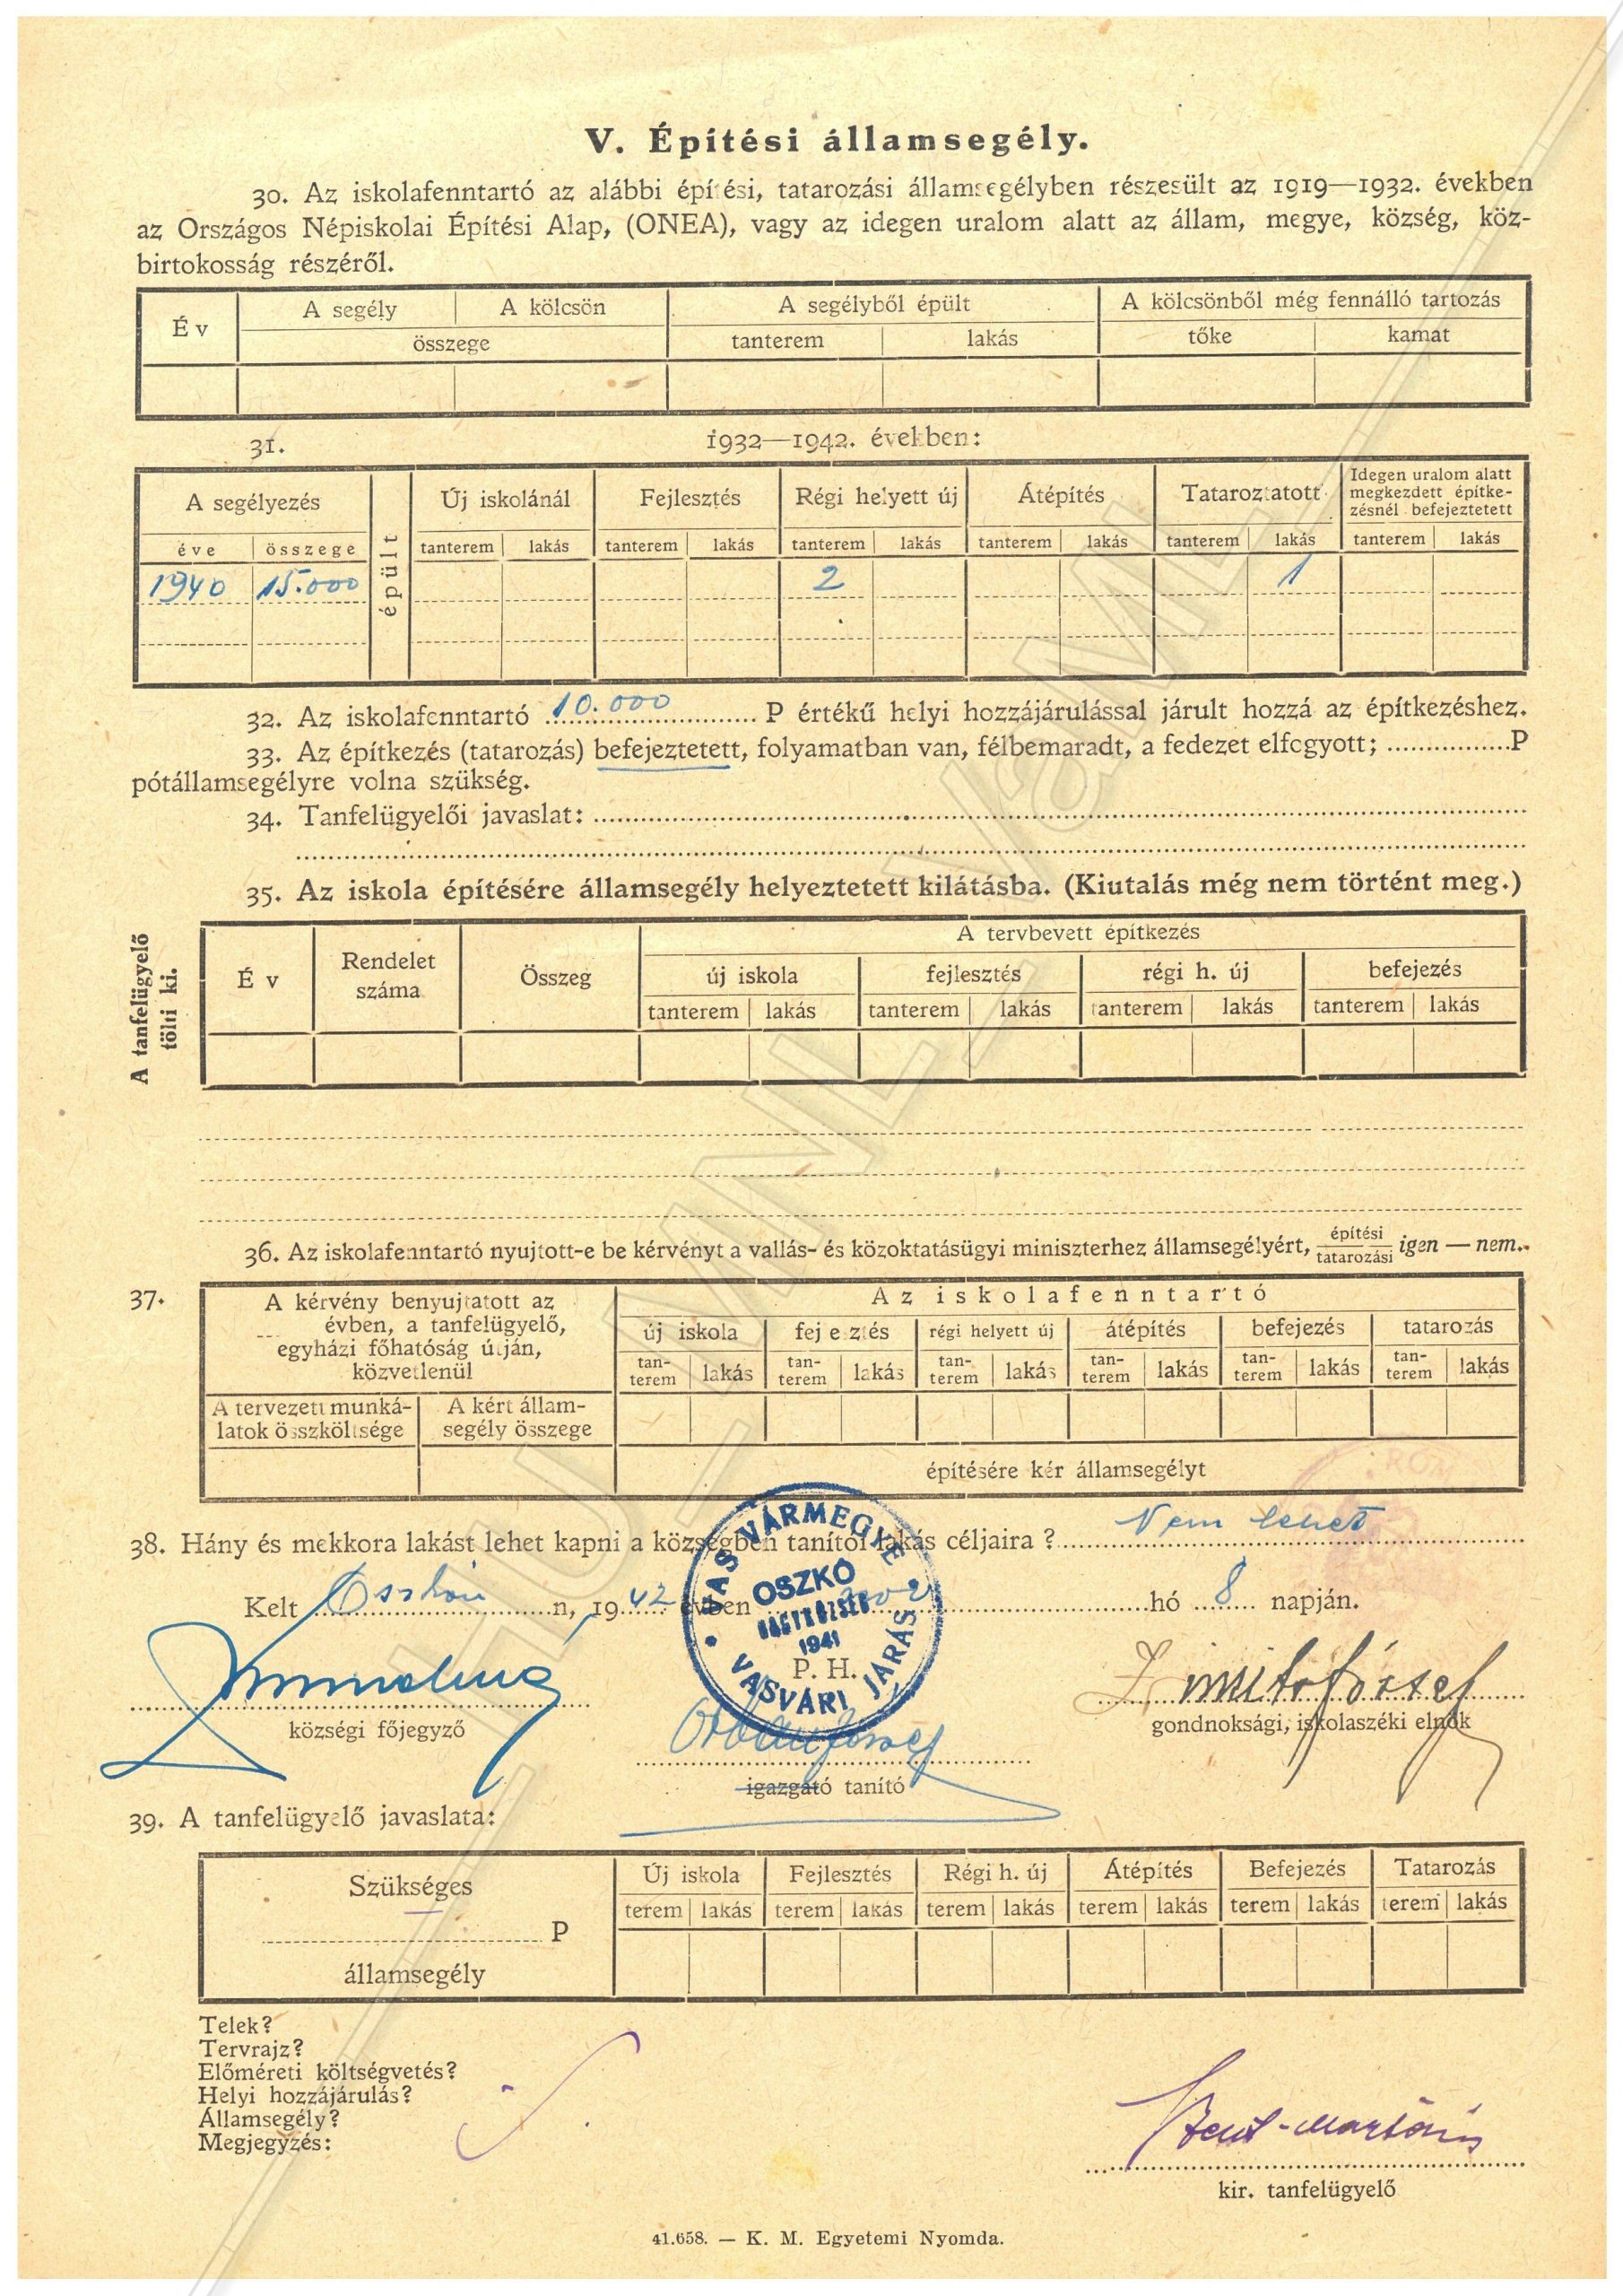 V. Építési államsegély.
30. Az iskolafenntartó az alábbi építési, tatarozási államsegélyben részesült az 1919—1932. években
az Országos Népiskolai Építési Alap, (ONEA), vagy az idegen uralom alatt az állam, megye, község, köz-
birtokosság részéről.
Év A segély A kölcsön A segélyből épült A kölcsönből még fennálló tartozás
összege tanterem lakás tőke kamat
31. 1932—1942. években:
A segélyezés épült Új iskolánál Fejlesztés Régi helyett új Átépítés Tataroztatott Idegen uralom alatt
megkezdett építke-
zésnél befejeztetett
éve összege tanterem lakás tanterem lakás tanterem lakás tanterem lakás tanterem lakás tanterem lakás
1940 15.000 2 1
32. Az iskolafenntartó 10.000 P értékű helyi hozzájárulással járult hozzá az építkezéshez.
33. Az építkezés (tatarozás) befejeztetett, folyamatban van, félbemaradt, a fedezet elfogyott; P
pótállamsegélyre volna szükség.
34. Tanfelügyelői javaslat:
35. Az iskola építésére államsegély helyeztetett kilátásba. (Kiutalás még nem történt meg.)
A tanfelügyelő
tölti ki.
Év Rendelet
száma Összeg A tervbevett építkezés
új iskola fejlesztés régi h. új befejezés
tanterem lakás tanterem lakás tanterem lakás tanterem lakás
36. Az iskolafenntartó nyujtott-e be kérvényt a vallás- és közoktatásügyi miniszterhez államsegélyért, építési
tatarozási igen — nem.
37. A kérvény benyujtatott az
évben, a tanfelügyelő,
egyházi főhatóság útján,
közvetlenül
Az iskolafenntartó
új iskola fejlesztés régi helyett új átépítés befejezés tatarozás
tan-
terem lakás tan-
terem lakás tan-
terem lakás tan-
terem lakás tan-
terem lakás tan-
terem lakás
A tervezett munká-
latok összköltsége A kért állam-
segély összege
építésére kér államsegélyt
38. Hány és mekkora lakást lehet kapni a községben tanítói lakás céljaira? Nem lehet
Kelt Oszkón, 1942 évben hó 8 napján.
VAS VÁRMEGYE
OSZKÓ
NAGYKÖZSÉG
1941
VASVÁRI JÁRÁS
P. H.
községi főjegyző
Orbán József
igazgató tanító
József
gondnoksági, iskolaszéki elnök
39. A tanfelügyelő javaslata:
Szükséges
P
államsegély
Új iskola Fejlesztés Régi h. új Átépítés Befejezés Tatarozás
terem lakás terem lakás terem lakás terem lakás terem lakás terem lakás
Telek?
Tervrajz?
Előméreti költségvetés?
Helyi hozzájárulás?
Államsegély?
Megjegyzés:
kir. tanfelügyelő
41.658. — K. M. Egyetemi Nyomda.
HU_MNL_VaML